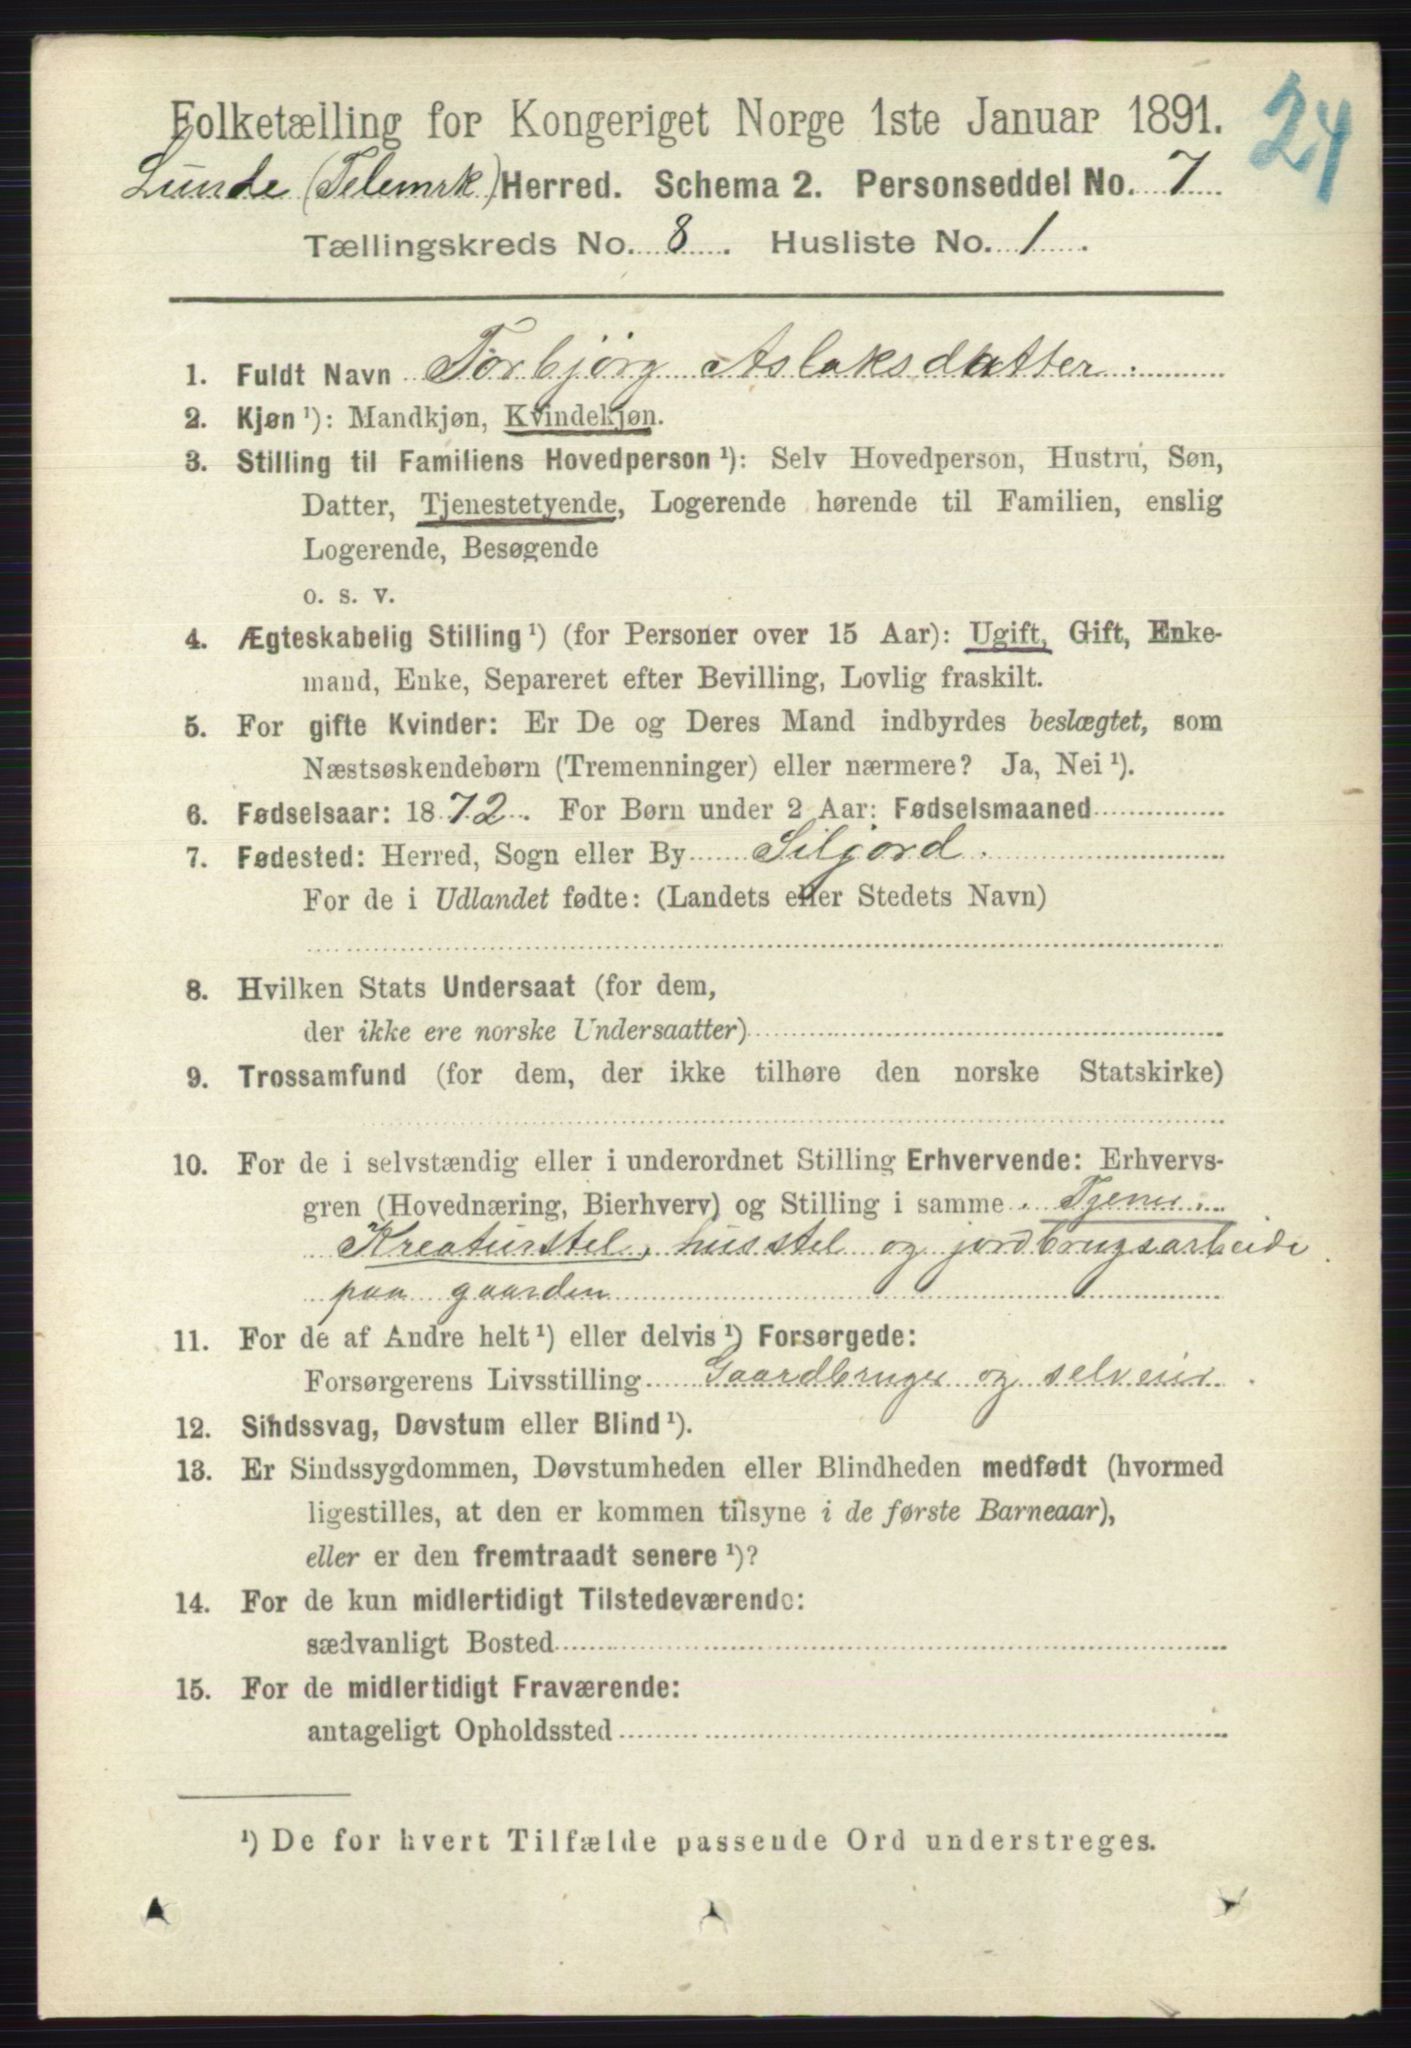 24
Folketælling for Kongeriget Norge 1ste Januar 1891.
Lunde (Telemrk) Herred. Schema 2. Personseddel No. 7
Tællingskreds No. 8. Husliste No. 1.
1. Fuldt Navn Torbjörg Aslaksdatter.
2. Kjøn ¹): Mandkjøn, Kvindekjøn.
3. Stilling til Familiens Hovedperson ¹): Selv Hovedperson, Hustru, Søn,
Datter, Tjenestetyende, Logerende hørende til Familien, enslig
Logerende, Besøgende
o. s. v.
4. Ægteskabelig Stilling ¹) (for Personer over 15 Aar): Ugift, Gift, Enke-
mand, Enke, Separeret efter Bevilling, Lovlig fraskilt.
5. For gifte Kvinder: Er De og Deres Mand indbyrdes beslægtet, som
Næstsøskendebørn (Tremenninger) eller nærmere? Ja, Nei ¹).
6. Fødselsaar: 1872. For Børn under 2 Aar: Fødselsmaaned
7. Fødested: Herred, Sogn eller By Siljord.
For de i Udlandet fødte: (Landets eller Stedets Navn)
8. Hvilken Stats Undersaat (for dem,
der ikke ere norske Undersaatter)
9. Trossamfund (for dem, der ikke tilhøre den norske Statskirke)
10. For de i selvstændig eller i underordnet Stilling Erhvervende: Erhvervs-
gren (Hovednæring, Bierhverv) og Stilling i samme. Tjener.
Kreaturstel, husstel og jordbrugsarbeide
paa gaarden
11. For de af Andre helt ¹) eller delvis ¹) Forsørgede:
Forsørgerens Livsstilling Gaardbruger og selveier.
12. Sindssvag, Døvstum eller Blind ¹).
13. Er Sindssygdommen, Døvstumheden eller Blindheden medfødt (hvormed
ligestilles, at den er kommen tilsyne i de første Barneaar),
eller er den fremtraadt senere ¹)?
14. For de kun midlertidigt Tilstedeværende:
sædvanligt Bosted
15. For de midlertidigt Fraværende:
antageligt Opholdssted
¹) De for hvert Tilfælde passende Ord understreges.